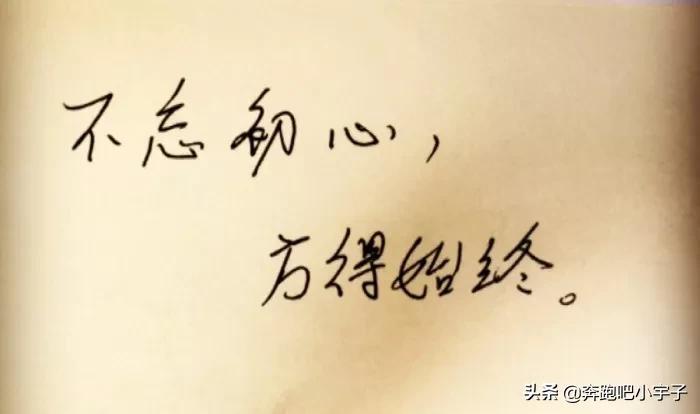 不忘初心，
方得始终。
头条 @奔跑吧小宇子